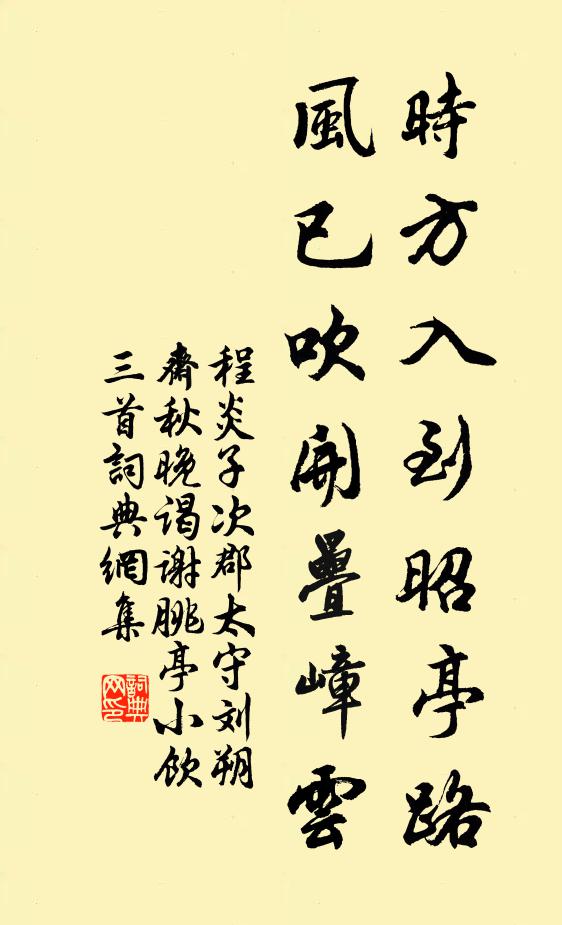 時方入到昭亭路
風已吹開疊嶂雲
程炎子次郡太守刘朔
齋秋晚谒謝朓亭小飲
三首詞典網集
詞典网印